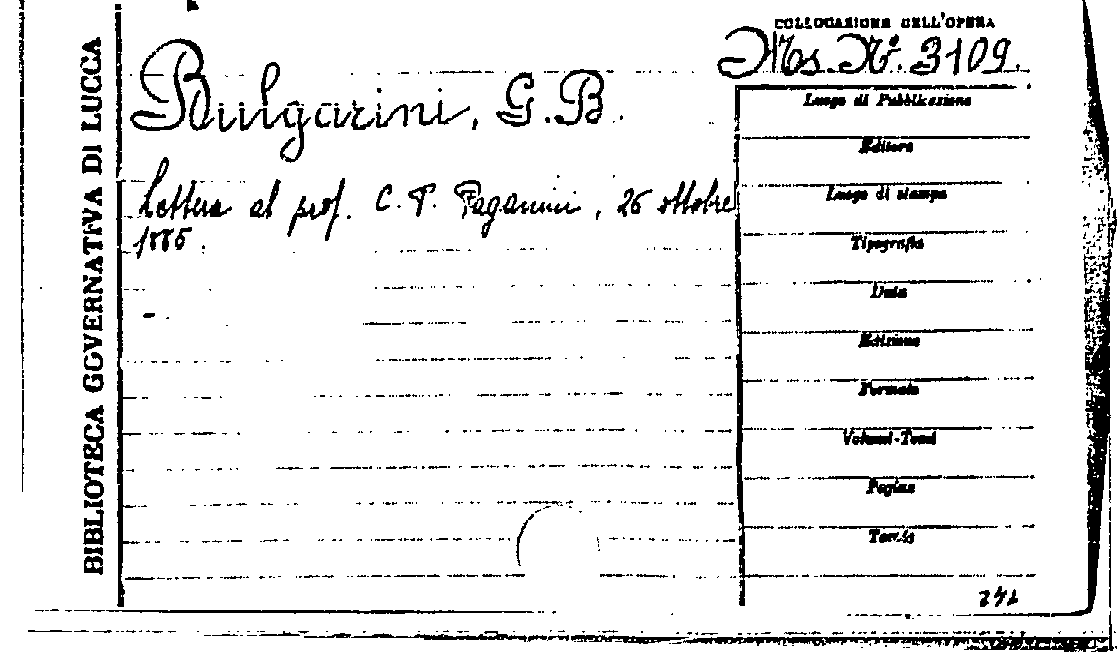 BIBLIOTECA GOVERNATIVA DI LUCCA
COLLOCAZIONE DELL'OPERA
Ms. N.º 3109.
Bulgarini, G.B.
Lettera al prof. C. P. Paganini, 26 ottobre
1885.
Luogo di Pubblicazione
Editore
Luogo di stampa
Tipografia
Data
Edizione
Formato
Volumi-Tomi
Pagine
Tavole